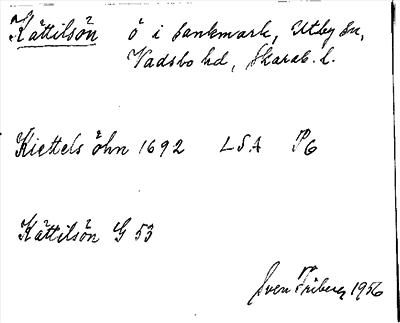 Kättilsön ö i sankmark, Utby sn,
Vadsbo hd, Skarab. l.
Kiettels öhn 1692 LSA P6
Kättilsön G 53
Sven Friberg 1956